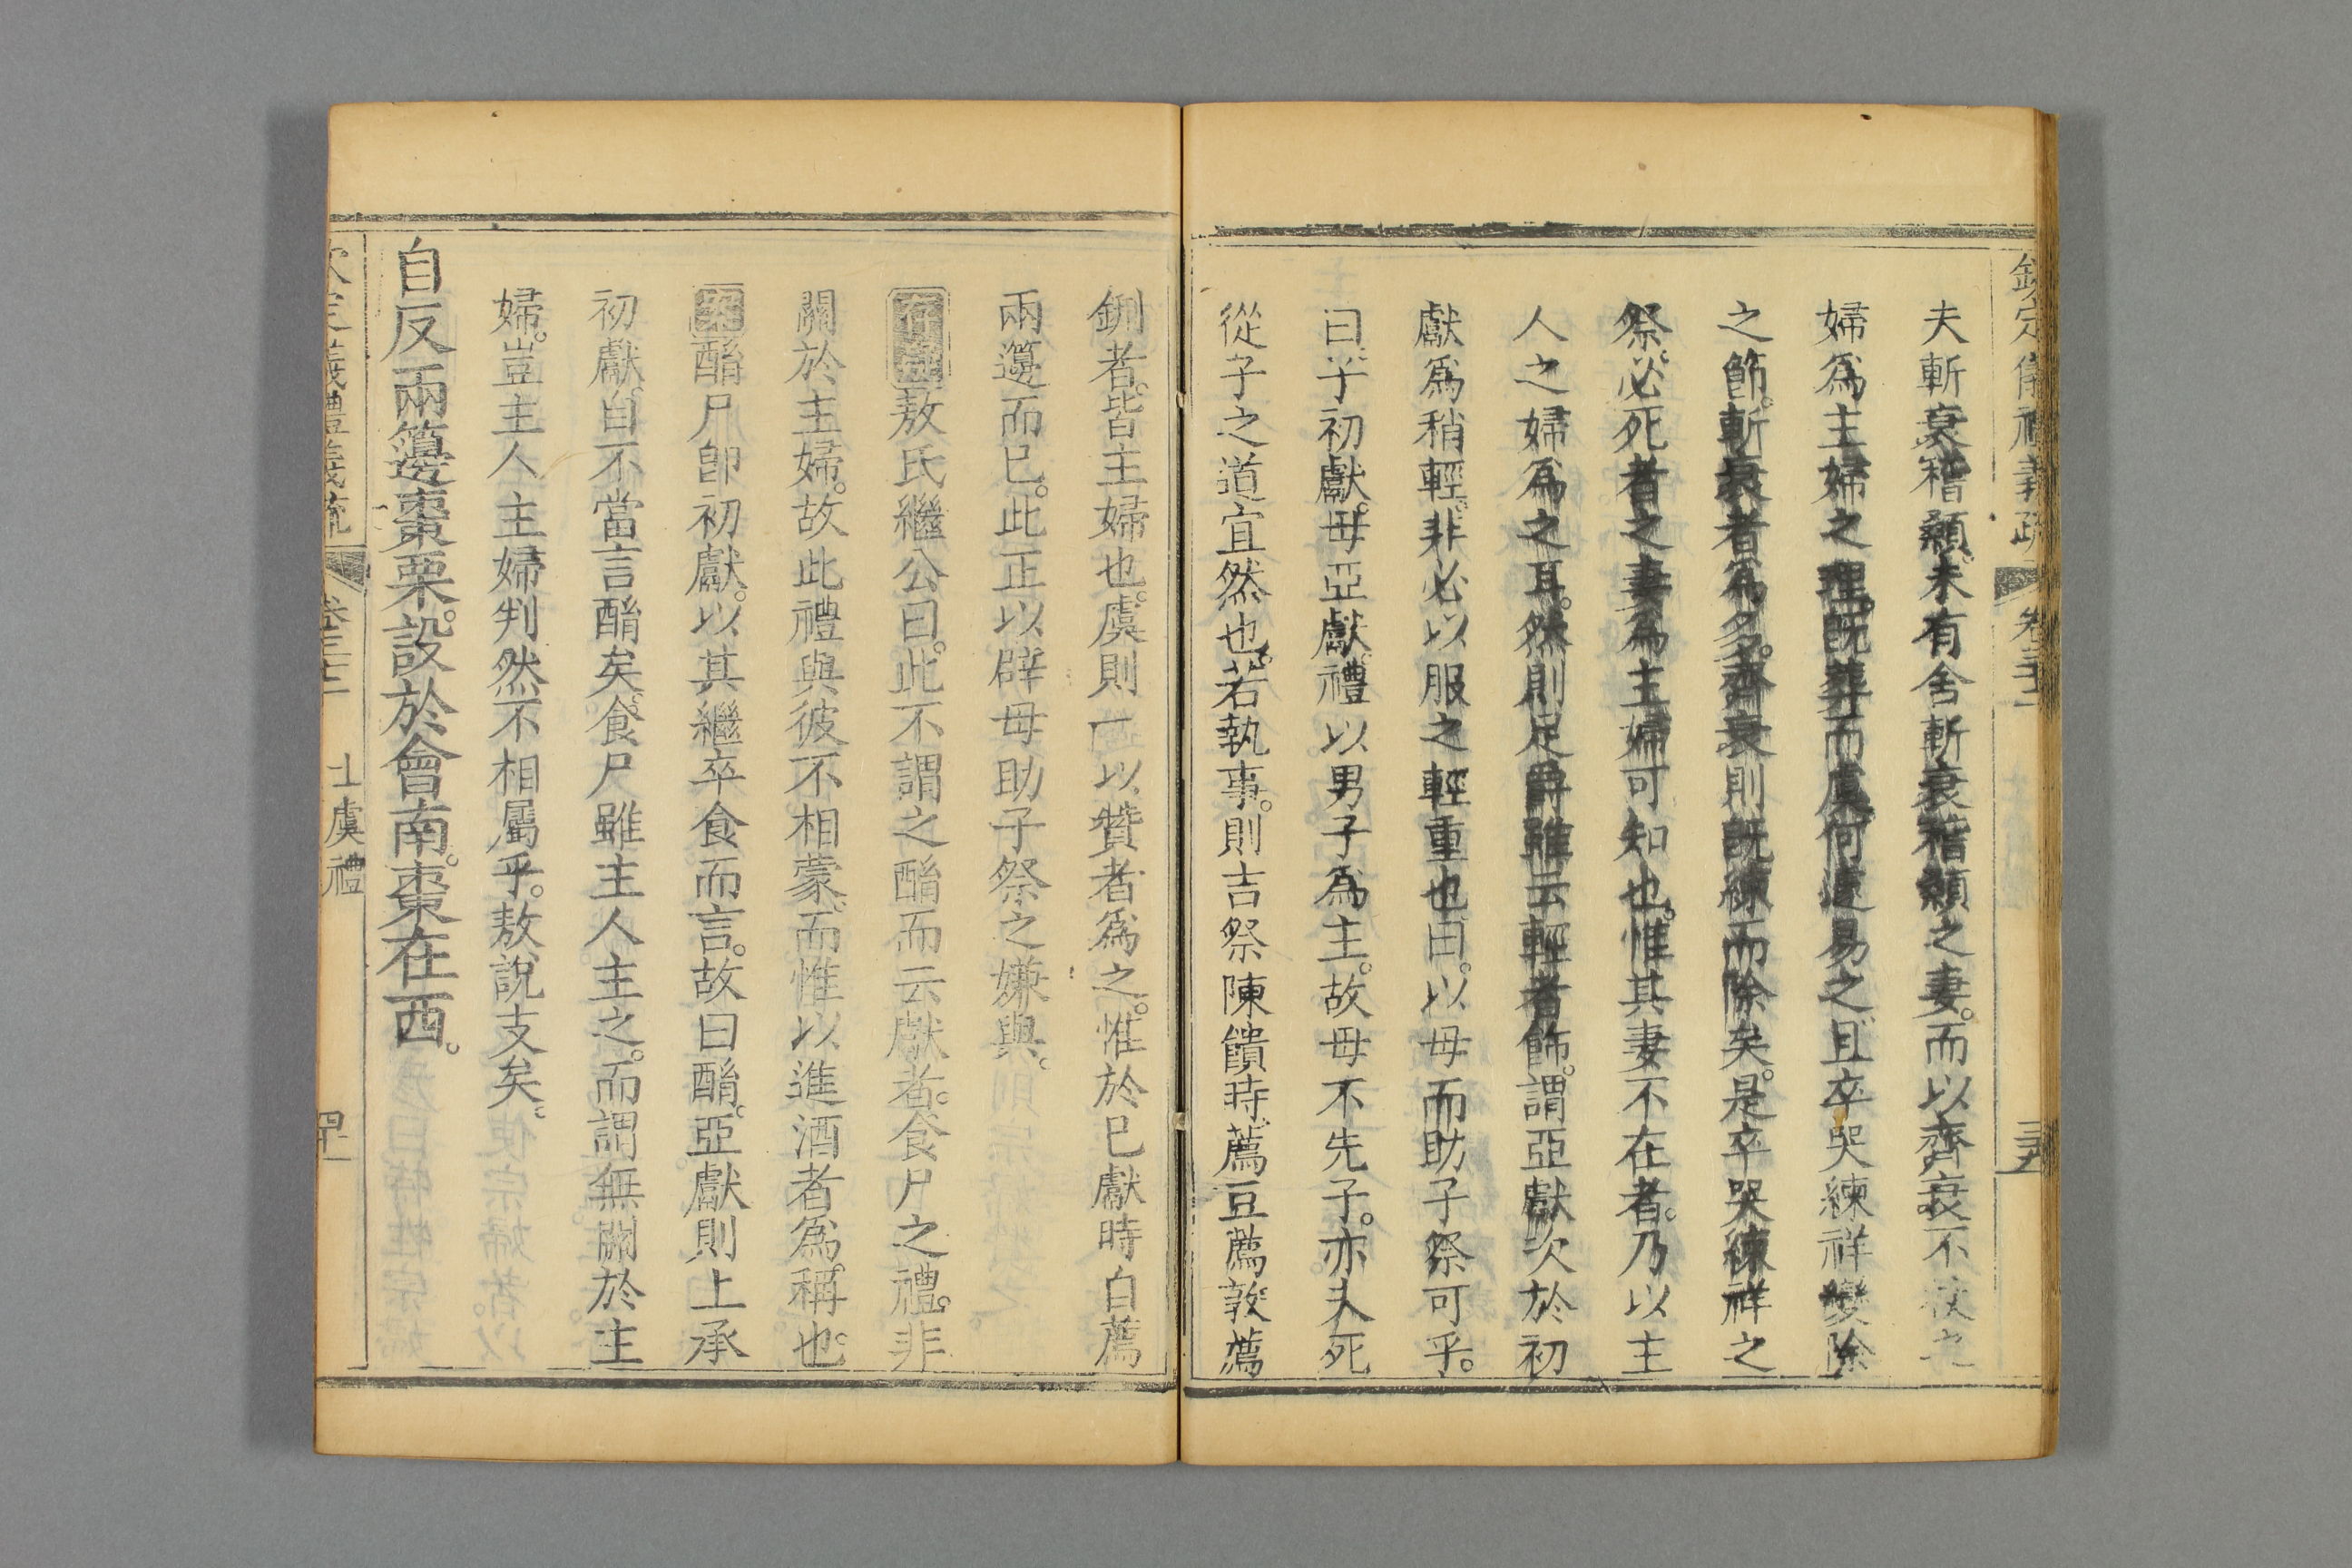 欽定儀禮義疏 卷三十三
夫斬衰稽顙。未有舍斬衰稽顙之妻。而以齊衰不
婦爲主婦之理。旣葬而虞何遽易之。且卒哭練祥變除
之節。斬衰者爲多。齊衰則旣練而除矣。是卒哭練祥之
祭。必死者之妻爲主婦可知也。惟其妻不在者。乃以主
人之婦爲之耳。然則足爵雖云輕者飾。謂亞獻次於初
獻爲稍輕。非必以服之輕重也。曰。以母而助子祭可乎。
曰。子初獻。母亞獻。禮以男子爲主。故母不先子。亦夫死
從子之道宜然也。若執事。則吉祭陳饋時。薦豆薦敦薦
鉶者。皆主婦也。虞則一以贊者爲之。惟於已獻時自薦
兩籩而已。此正以辟母助子祭之嫌與。
存疑敖氏繼公曰。此不謂之酳而云獻者。食尸之禮。非
關於主婦。故此禮與彼不相蒙。而惟以進酒者爲稱也。
案酳尸卽初獻。以其繼卒食而言。故曰酳。亞獻則上承
初獻。自不當言酳矣。食尸雖主人主之。而謂無關於主
婦。豈主人主婦判然不相屬乎。敖說支矣。
自反兩籩棗栗。設於會南。棗在西。
欽定儀禮義疏 卷三十三 士虞禮